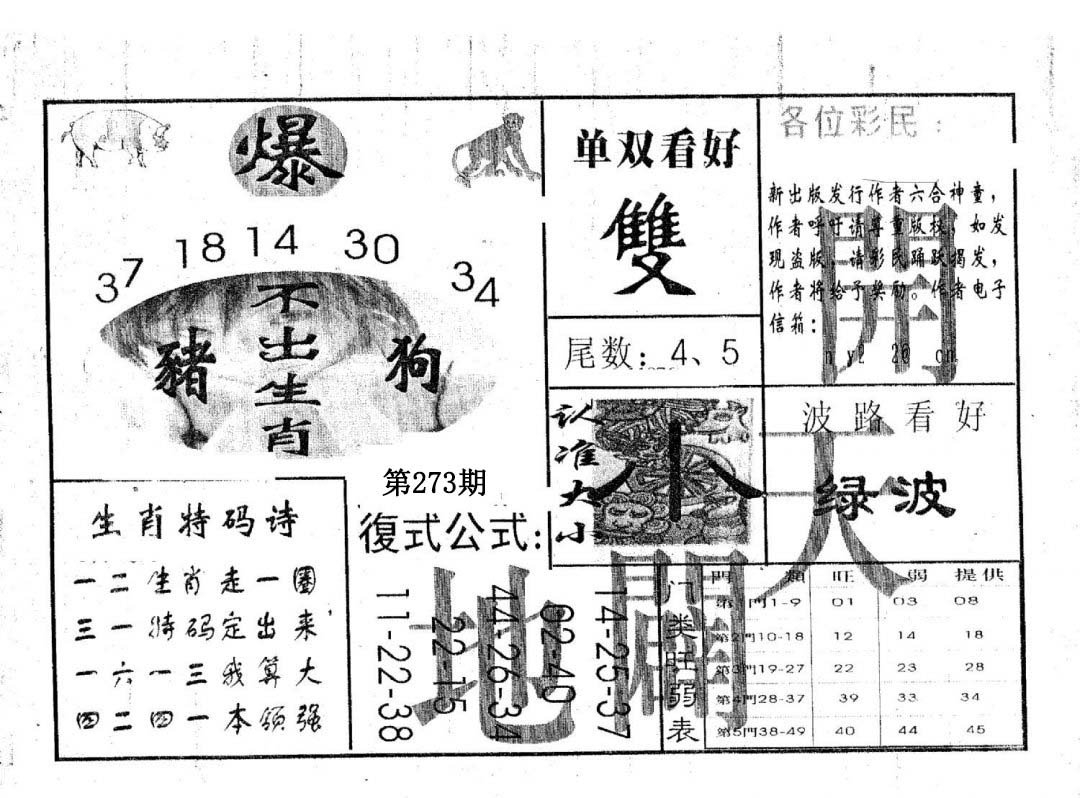 爆
37 18 14 30 34
不出生肖
豬
狗
第273期
生肖特码诗
一二生肖走一圈
三一特码定出来
一六一三我算大
四二四一本领强
復式公式:
11-22-38
22-15
44-26-34
02-40
14-25-37
单双看好
雙
尾数：4、5
认准大小
小
各位彩民：
新出版发行作者六合神童，
作者呼吁请尊重版权，如发
现盗版，请彩民踊跃揭发，
作者将给予奖励。作者电子
信箱：
波路看好
绿波
開天
地闢
门类旺弱表
門類 旺 弱 提供
第1門1-9 01 03 08
第2門10-18 12 14 18
第3門19-27 22 23 28
第4門28-37 39 33 34
第5門38-49 40 44 45